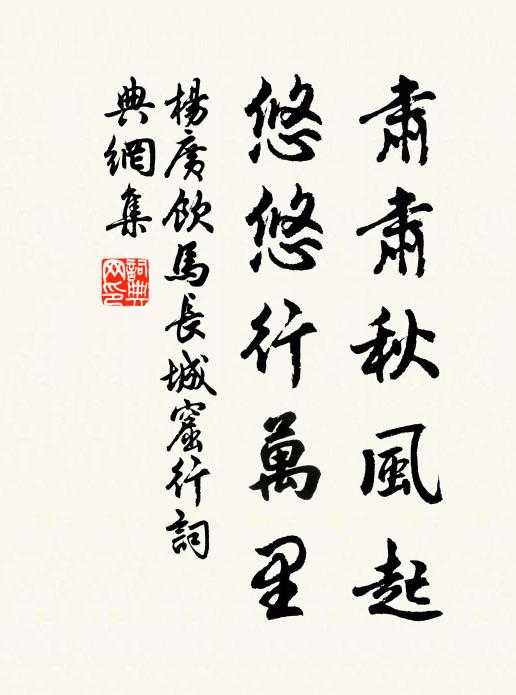 肅肅秋風起
悠悠行萬里
楊廣飲馬長城窟行詞
典網集
詞典网印